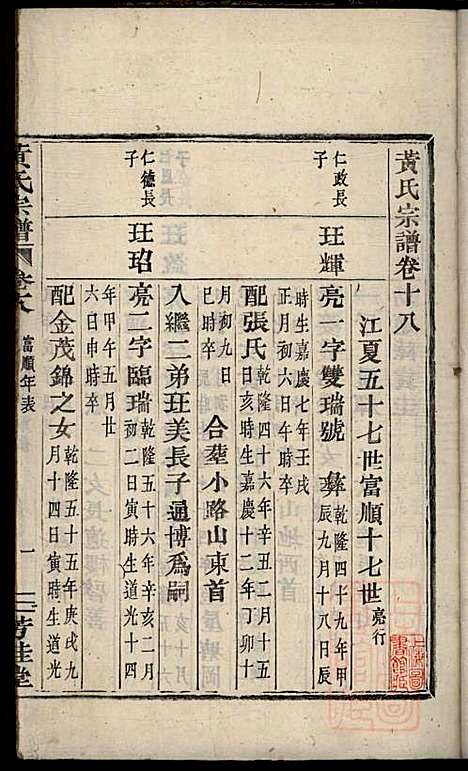 黃氏宗譜卷十八
江夏五十七世富順十七世亮行
仁政長子
珏輝
亮一字雙瑞號 彝乾隆四十九年甲辰九月十八日辰
時生嘉慶七年壬戌正月初六日寅時卒
配張氏乾隆四十六年辛丑二月十五日亥時卒嘉慶十二年丁卯十
月初九日巳時卒
合塟小路山東首
入繼二弟珏美長子通博為嗣
仁德長子
珏玿
亮二字臨瑞乾隆五十六年辛亥二月初二日寅時生道光十四
年甲午五月廿六日申時卒
配金茂錦之女乾隆五十五年庚戌九月十四日寅時生道光
黃氏宗譜
卷十八
富順年表
一
芳桂堂